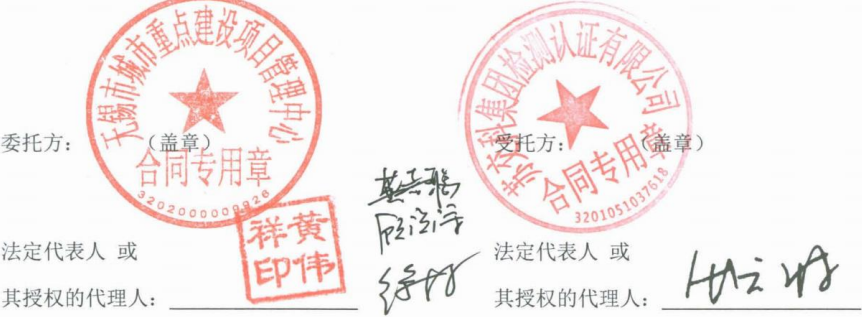 无锡市城市重点建设项目管理中心
合同专用章
3202000009926
委托方：（盖章）
祥黄
印伟
法定代表人 或
其授权的代理人：
苏交科集团检测认证有限公司
合同专用章
3201051037618
受托方：（盖章）
法定代表人 或
其授权的代理人：